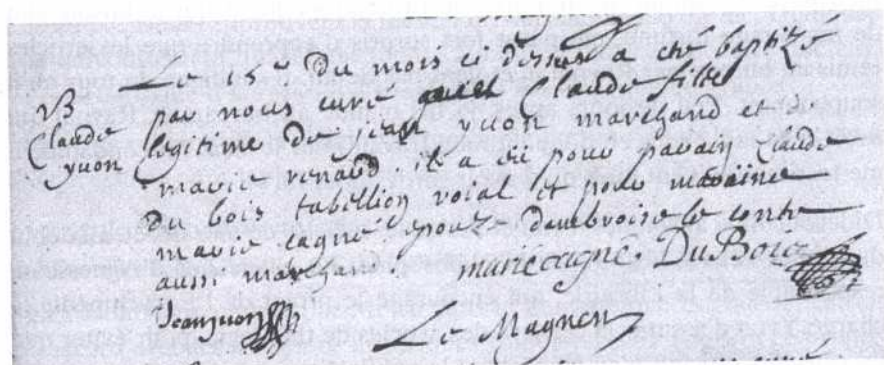 B
Claude
yuon
Le 15e du mois ci dessus a eté baptizé
par nous curé Claude fille
legitime de jean yuon marchand et de
marie renaud. il a eü pour parain Claude
du bois tabellion roial et pour maraine
marie cagné epouze dambroise le conte
aussi marchand.
marie cagné. DuBois
Jean yuon
Le Magnen